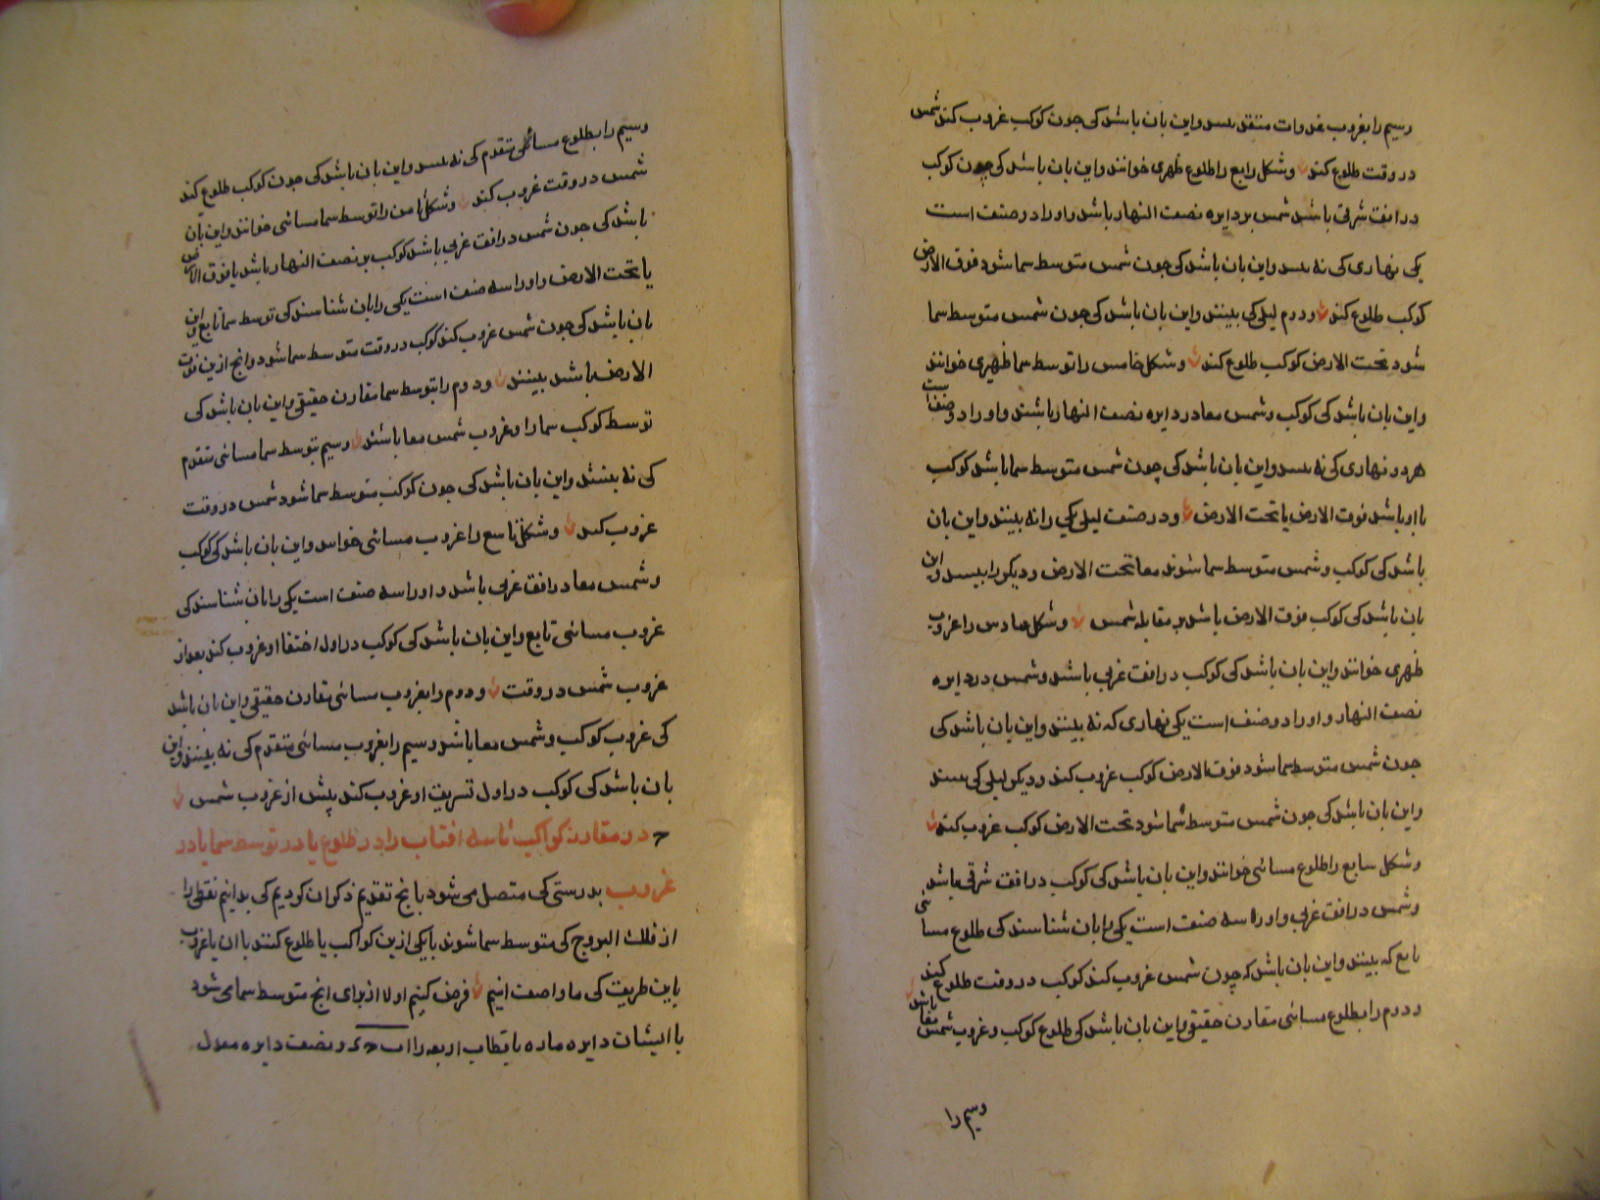 وسیم را بغروب غدوات متقدم و این بان باشد کی چون کوکب غروب کند شمس
در وقت طلوع کند و شکل رابع را طلوع ظهری خوانند و این بان باشد کی چون کوکب
در افق شرقی باشد شمس بر دایره نصف النهار باشد و او را دو صنف است
یکی نهاری کی نه بینند و این بان باشد کی چون شمس متوسط سما شود فوق الارض
کوکب طلوع کند و دوم لیلی کی بینند و این بان باشد کی چون شمس متوسط سما
شود تحت الارض کوکب طلوع کند و شکل خامس را توسط سما ظهیری خوانند
و این بان باشد کی کوکب و شمس معا در دایره نصف النهار باشند و او را دو صنف است
هر دو نهاری کی نه بینند و این بان باشد کی چون شمس متوسط سما باشد کوکب
با او باشد فوق الارض یا تحت الارض و در صنف لیلی یکی را نه بینند و این بان
باشد کی کوکب و شمس متوسط سما شوند معا تحت الارض و دیکر را بینند و این
بان باشد کی کوکب فوق الارض باشد بر مقابله شمس و شکل سادس را غروب
ظهری خوانند و این بان باشد کی کوکب در افق غربی باشد و شمس در دایره
نصف النهار و او را دو صنف است یکی نهاری که نه بینند و این بان باشد کی
چون شمس متوسط سما شود فوق الارض کوکب غروب کند و دیکر لیلی کی بینند
و این بان باشد کی چون شمس متوسط سما شود تحت الارض کوکب غروب کند
و شکل سابع را طلوع مسائی خوانند و این بان باشد کی کوکب در افق شرقی باشد
و شمس در افق غربی و او را سه صنف است یکی را بان شناسند کی طلوع مسائی
تابع که بینند و این بان باشد که چون شمس غروب کند کوکب در وقت طلوع کند
و دوم را بطلوع مسائی مقارن حقیقی و این بان باشد کی طلوع کوکب و غروب شمس معا باشد
وسیم را
وسیم را بطلوع مسائی متقدم کی نه بینند و این بان باشد کی چون کوکب طلوع کند
شمس در وقت غروب کند و شکل ثامن را توسط سما مسائی خوانند و این بان
باشد کی چون شمس در افق غربی باشد کوکب بر نصف النهار باشد یا فوق الارض
یا تحت الارض و او را سه صنف است یکی را بان شناسند کی توسط سما تابع و این
بان باشد کی چون شمس غروب کند کوکب در وقت متوسط سما شود و انچ ازین فوق
الارض باشد بینند و دوم را بتوسط سما مقارن حقیقی و این بان باشد کی
توسط کوکب سما را و غروب شمس معا باشند و سیم بتوسط سما مسائی متقدم
کی نه بینند و این بان باشد کی چون کوکب متوسط سما شود شمس در وقت
غروب کند و شکل تاسع را غروب مسائی خوانند و این بان باشد کی کوکب
و شمس معا در افق غربی باشد و او را سه صنف است یکی را بان شناسند کی
غروب مسائی تابع و این بان باشد کی کوکب در اول اختفا او غروب کند بعد از
غروب شمس در وقت و دوم را بغروب مسائی مقارن حقیقی و این بان باشد
کی غروب کوکب و شمس معا باشد و سیم را بغروب مسائی متقدم کی نه بینند و این
بان باشد کی کوکب در اول تشریق او غروب کند پیش از غروب شمس
ح در مقارنه کواکب ثابته افتاب را در طلوع یا در توسط سما یا در
غروب بدرستی کی متصل می شود بانچ تقدیم ذکر ان کردیم کی بدانیم نقطی را
از فلک البروج کی متوسط سما شوند با یکی ازین کواکب یا طلوع کنند با ان یا غروب
باین طریق کی ما واصف انیم فرض کنیم اولا از برای انچ متوسط سما می شود
با ایشان دایره ماره باقطاب اربعه را اب حد و نصف دایره معدل